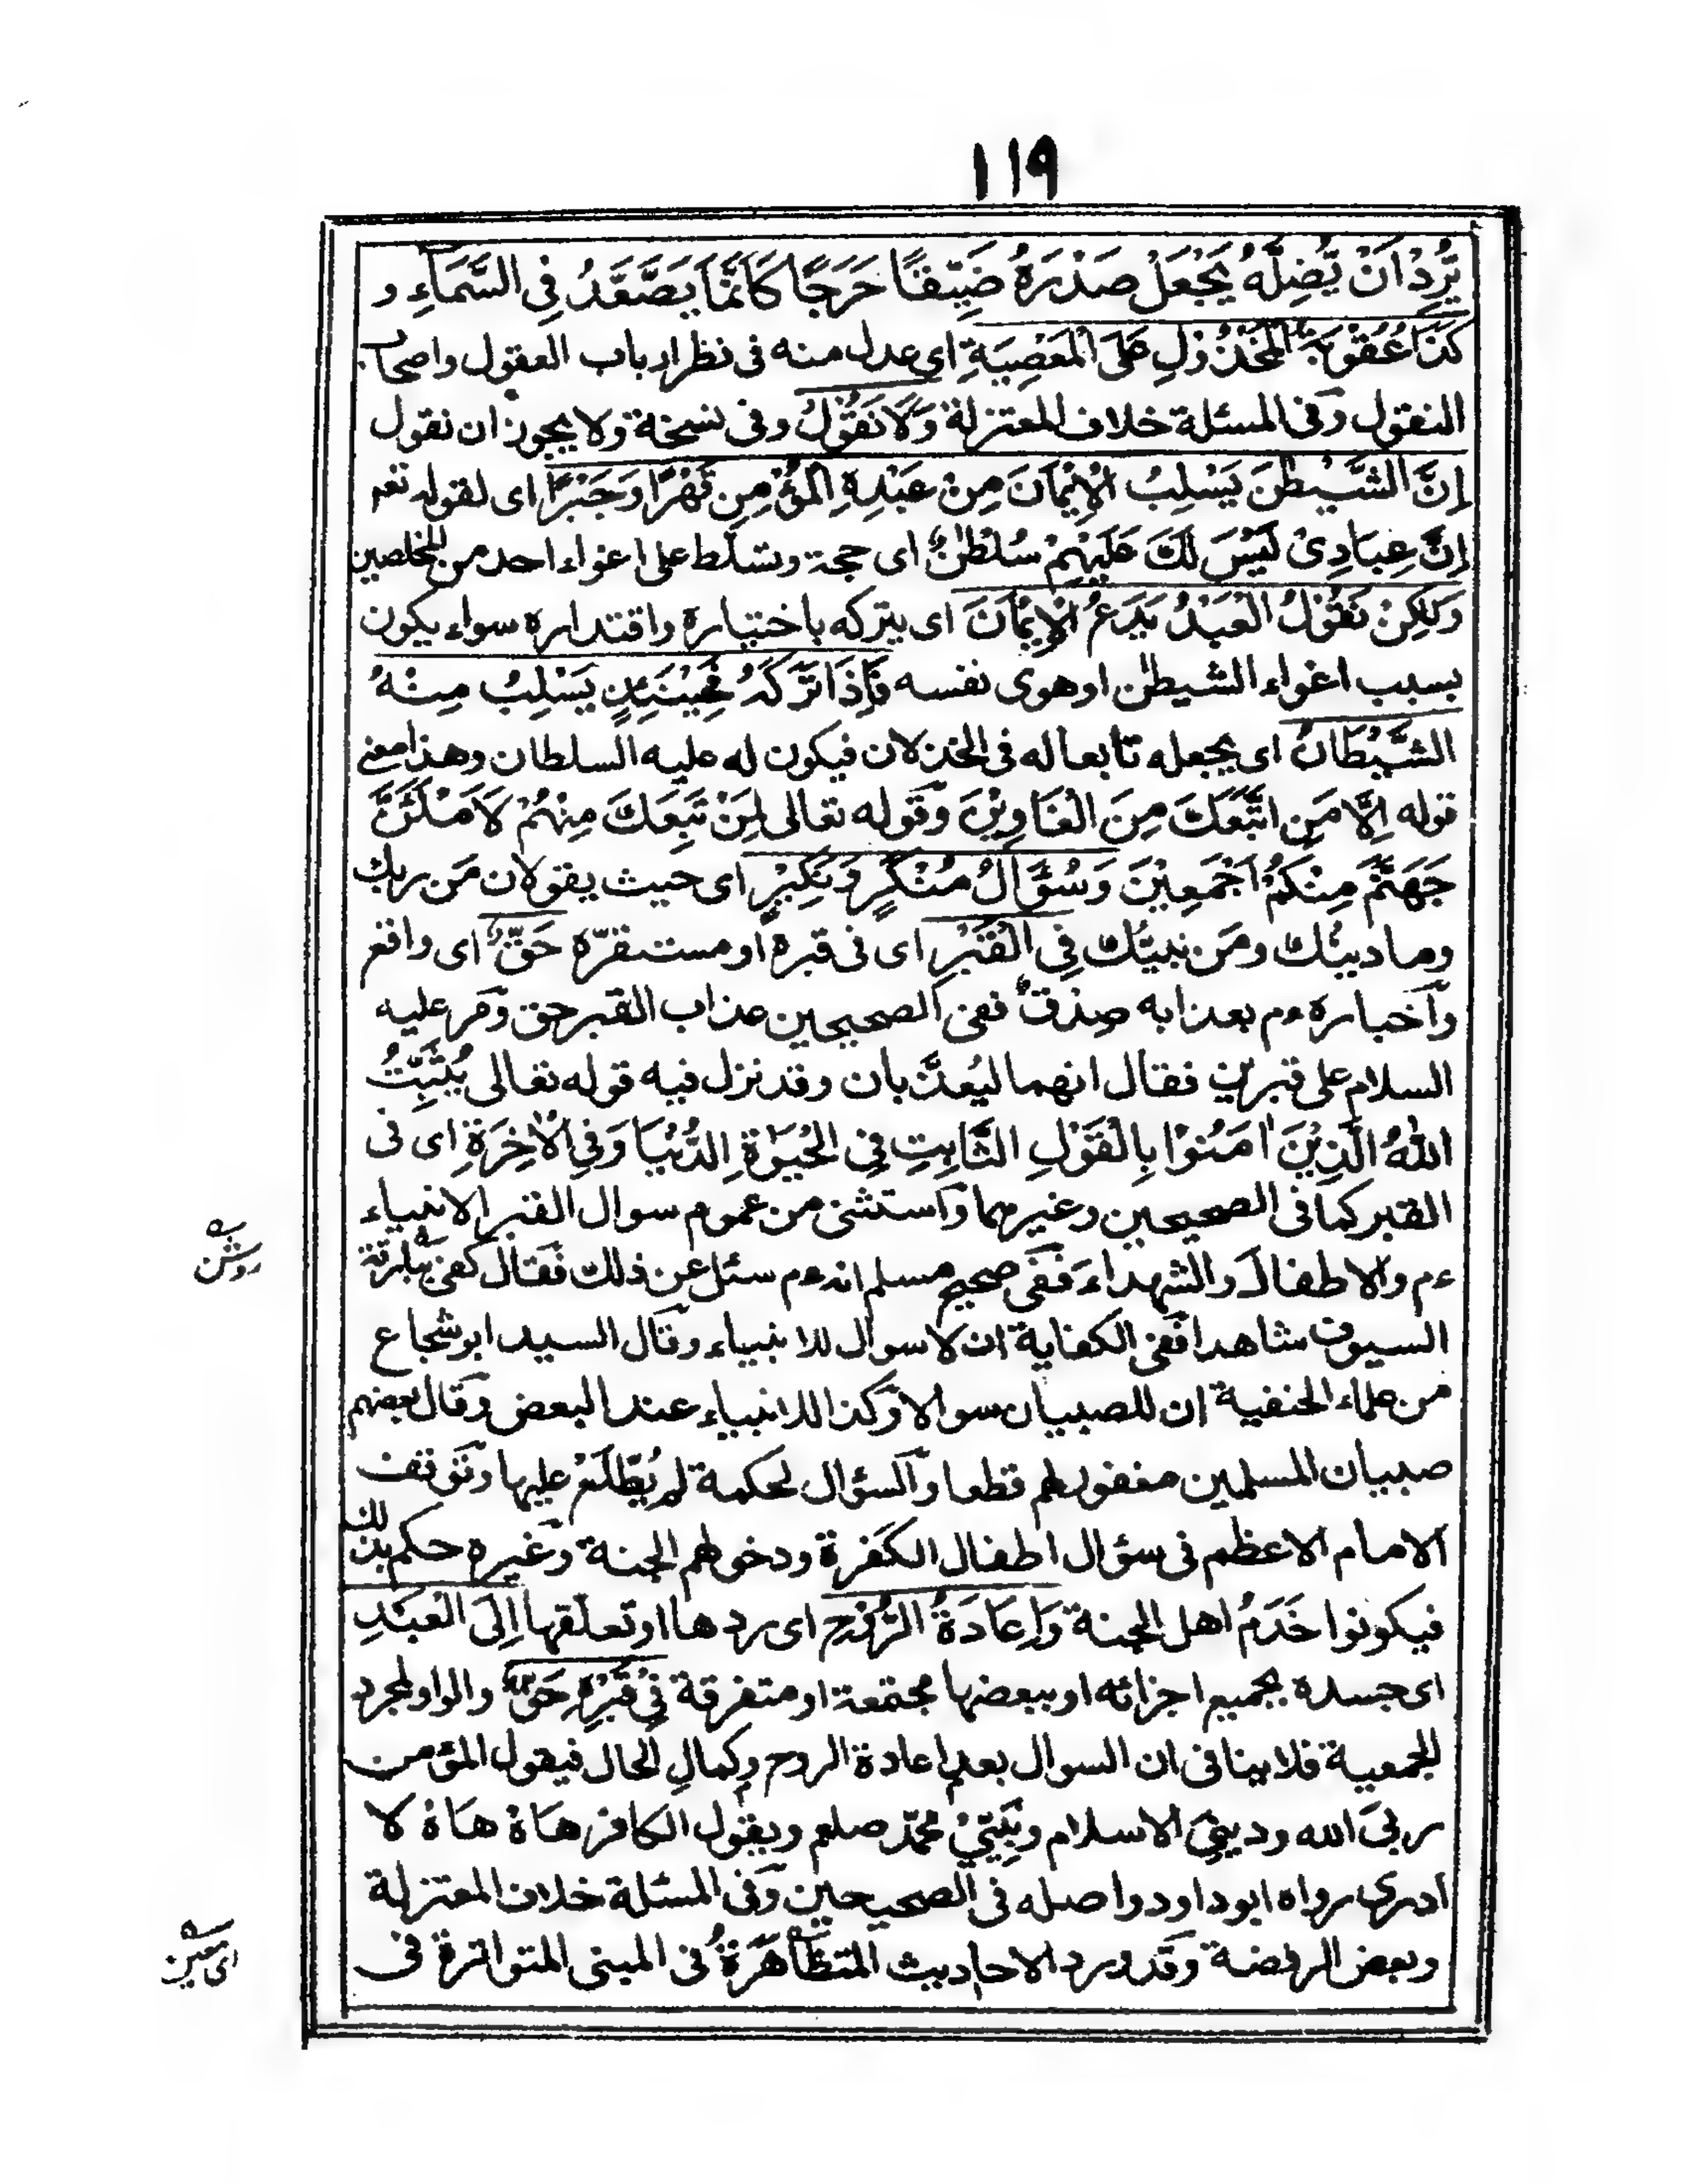 ١١٩
يُّرِدْ اَنْ يُّضِلَّهُ يَجْعَلْ صَدْرَهُ ضَيِّقًا حَرَجًا كَاَنَّمَا يَصَّعَّدُ فِي السَّمَآءِ و
كَذَا عُقُوْبَةُ الْمَخْذُوْلِ عَلَى الْمَعْصِيَةِ اى عدل منه فى نظر ارباب العقول واصحاب
النقول وفى المسئلة خلاف للمعتزلة وَلَا نَقُوْلُ وفى نسخة ولا يجوز ان نقول
اِنَّ الشَّيْطٰنَ يَسْلِبُ الْاِيْمَانَ مِنْ عَبْدِهِ الْمُؤْمِنِ قَهْرًا وَجَبْرًا اى لقوله تعم
اِنَّ عِبَادِىْ لَيْسَ لَكَ عَلَيْهِمْ سُلْطٰنٌ اى حجة وتسلّط على اغواء احد من المخلصين
وَلٰكِنْ نَقُوْلُ الْعَبْدُ يَدَعُ الْاِيْمَانَ اى يتركه باختياره واقتداره سواء يكون
بسبب اغواء الشيطٰن او هوى نفسه فَاِذَا تَرَكَهُ فَحِيْنَئِذٍ يَسْلِبُ مِنْهُ
الشَّيْطَانُ اى يجعله تابعا له فى الخذلان فيكون له عليه السلطان وهذا معنى
قوله اِلَّا مَنِ اتَّبَعَكَ مِنَ الْغَاوِيْنَ وقوله تعالى لَمَنْ تَبِعَكَ مِنْهُمْ لَاَمْلَئَنَّ
جَهَنَّمَ مِنْكُمْ اَجْمَعِيْنَ وَسُؤَالُ مُنْكَرٍ وَنَكِيْرٍ اى حيث يقولان مَن ربك
وما دينك ومَن نبيّك فِي الْقَبْرِ اى فى قبره او مستقرّه حَقٌّ اى واقع
واخباره ءم بعذابه صِدْقٌ ففى الصحيحين عذاب القبر حق ومر عليه
السلام على قبرين فقال انهما ليُعذَّبان وقد نزل فيه قوله تعالى يُثَبِّتُ
اللّٰهُ الَّذِيْنَ اٰمَنُوْا بِالْقَوْلِ الثَّابِتِ فِى الْحَيٰوةِ الدُّنْيَا وَفِى الْاٰخِرَةِ اى فى
القبر كما فى الصحيحين وغيرهما واستثنى من عموم سوال القبر الانبياء
ءم والاطفال والشهداء ففى صحيح مسلم انه ءم سئل عن ذلك فقال كفى ببارقة
السيوف شاهدا ففى الكفاية ان لا سوال للانبياء وقال السيد ابو شجاع
من علماء الحنفية ان للصبيان سوالا وكذا للانبياء عند البعض وقال بعضهم
صبيان المسلمين مغفور لهم قطعا والسؤال لحكمة لم يُطَّلَعْ عليها وتوقف
الامام الاعظم فى سؤال اطفال الكفرة ودخولهم الجنة وغيره حكم بذلك
فيكونوا خَدَمُ اهل الجنة وَاِعَادَةُ الرُّوْحِ اى ردها او تعلّقها اِلَى الْعَبْدِ
اى جسده بجميع اجزائه او ببعضها مجتمعة او متفرقة فِىْ قَبْرِهِ حَقٌّ والواو لمجرد
للجمعية فلا ينافى ان السوال بعد اعادة الروح وكمالِ الحال فيقول المؤمن
ربىَ الله ودينىَ الاسلام ونَبِيّىْ محمّد صلعم ويقول الكافر هَاهْ هَاهْ لا
ادرى رواه ابو داود واصله فى الصحيحين وفى المسئلة خلاف المعتزلة
وبعض الرفضة وقد ورد الاحاديث المتظَاهَرَةُ فى المبنى المتواترة فى
روشن